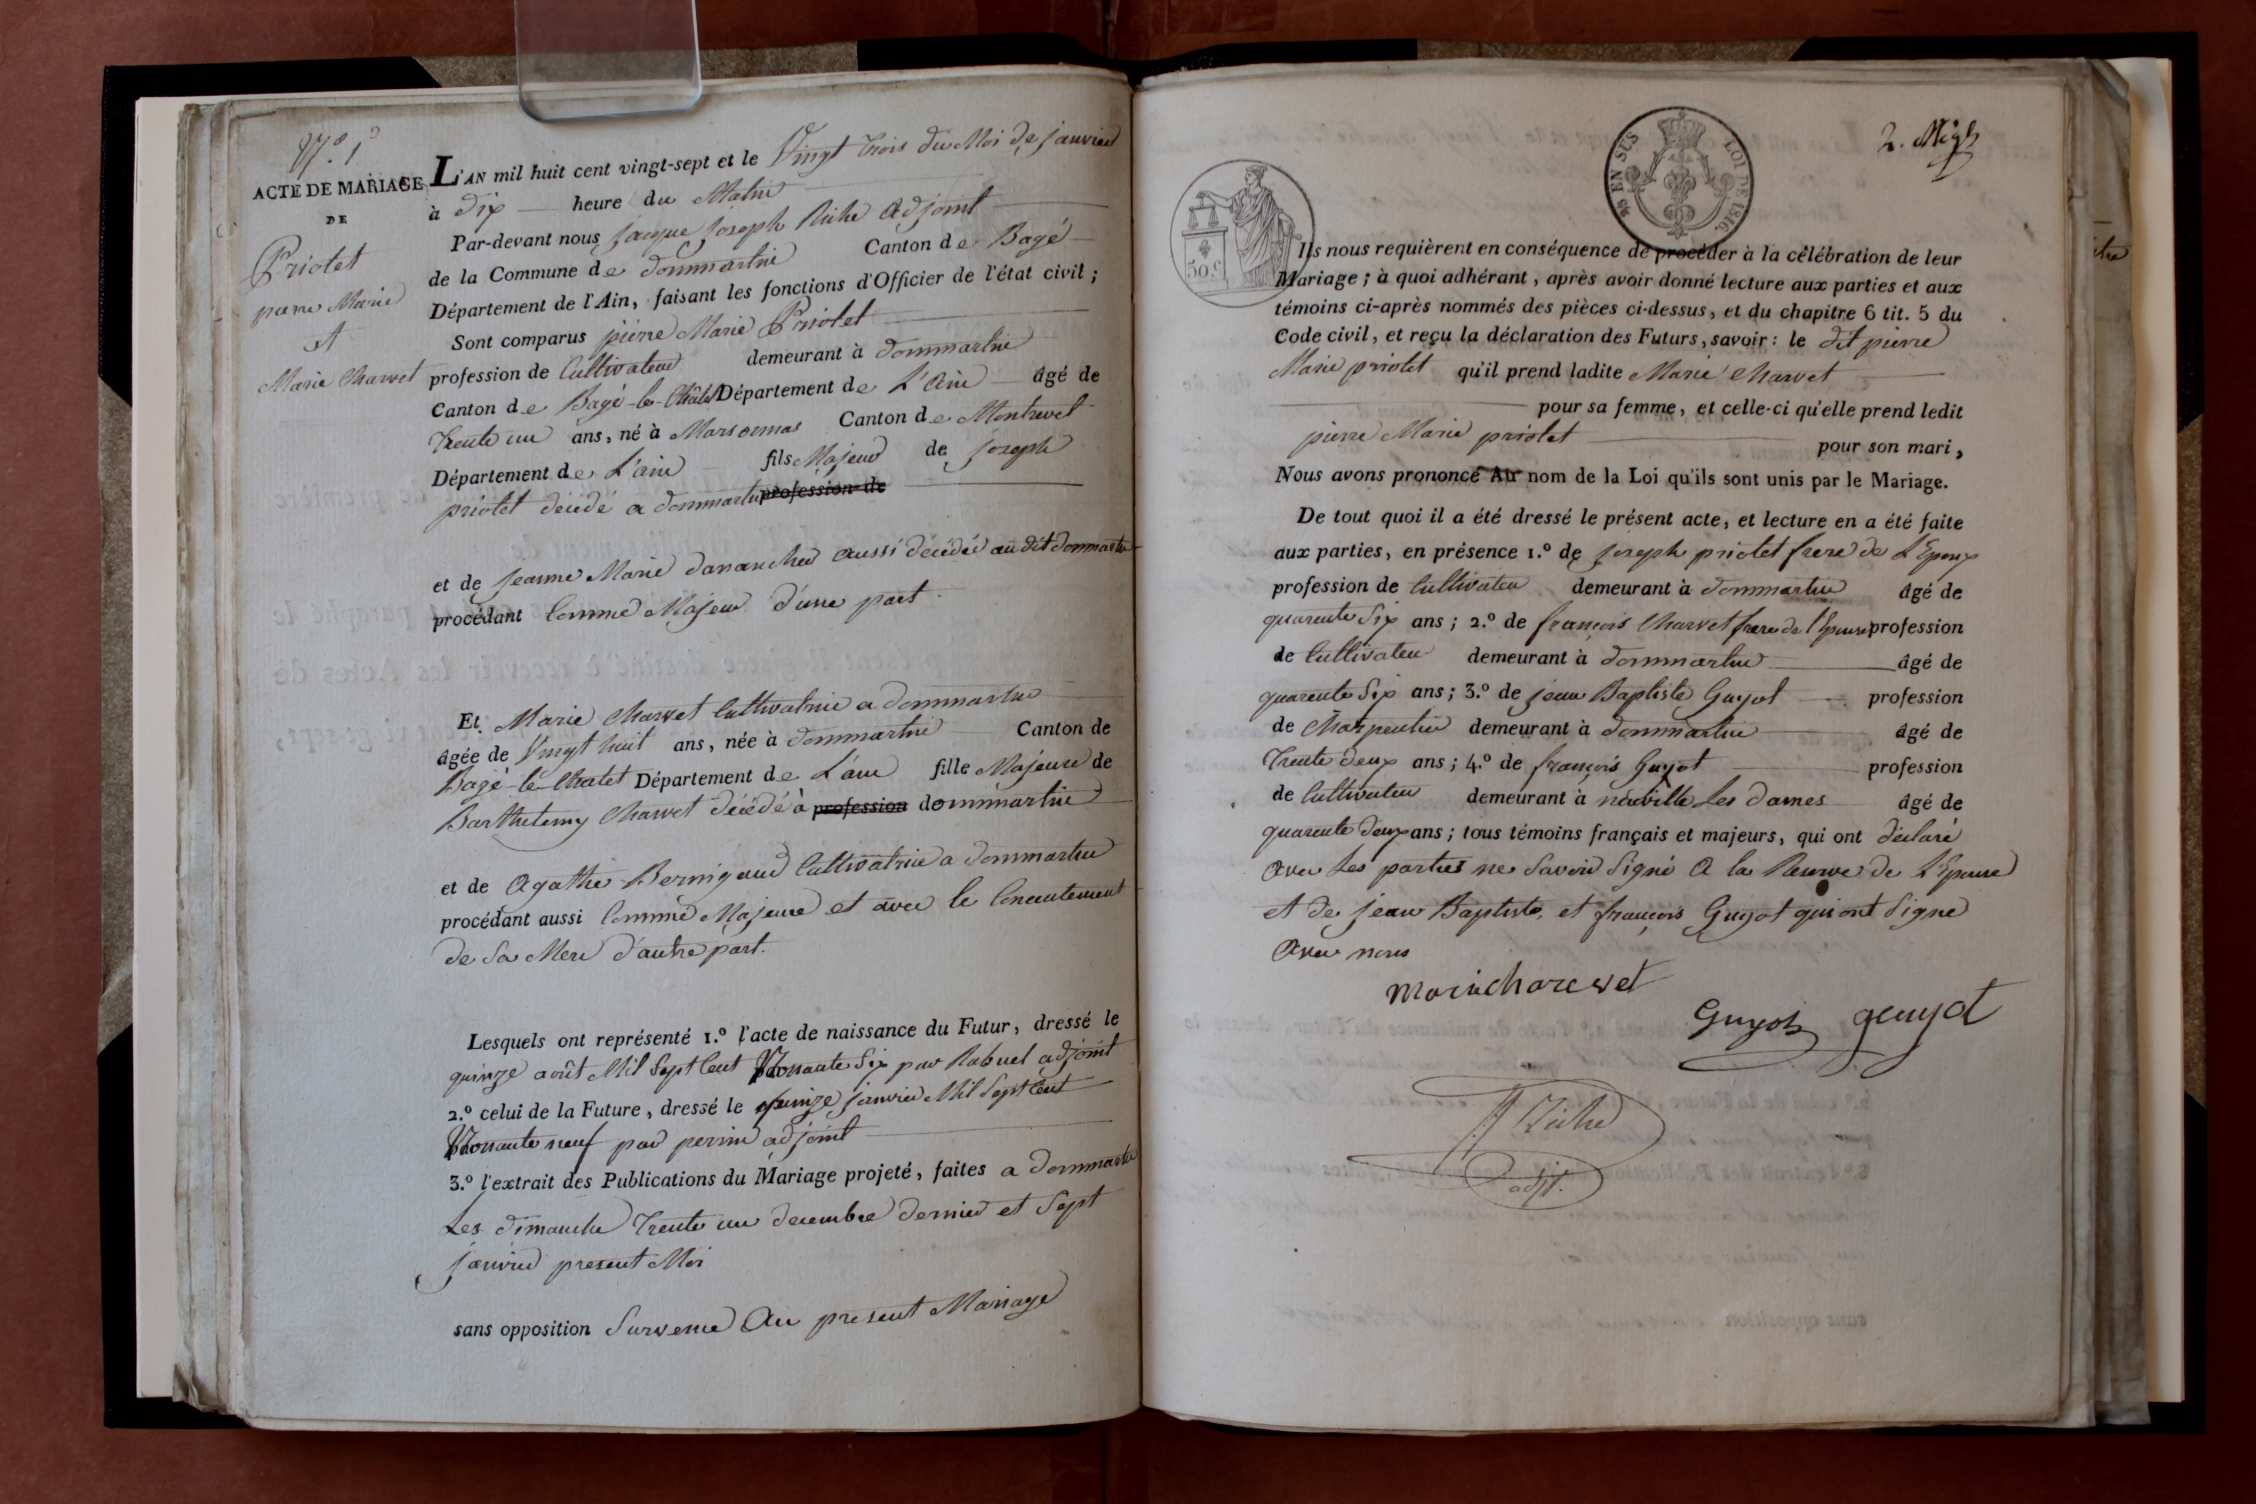 N.º 1º
ACTE DE MARIAGE
DE
Priolet
pierre Marie
et
Marie Charvet
L'AN mil huit cent vingt-sept et le Vingt trois du Moi de janvier
à dix heure du Matin
Par-devant nous jacque joseph Riche Adjoint
de la Commune de dommartin Canton de Bagé
Département de l'Ain, faisant les fonctions d'Officier de l'état civil;
Sont comparus pierre Marie Priolet
profession de Cultivateur demeurant à dommartin
Canton de Bagé-le-Châtel Département de L'Ain âgé de
trente un ans, né à Marsonnas Canton de Montrevel
Département de L'ain fils Majeur de joseph
priolet décédé a dommartin profession de
et de jeanne Marie danancher aussi décédée audit dommartin
procédant Comme Majeur d'une part
Et Marie Charvet Cultivatrice a dommartin
âgée de Vingt huit ans, née à dommartin Canton de
Bagé-le-Chatel Département de L'ain fille Majeure de
Barthelemy Charvet décédé à profession dommartin
et de Agathe Bernigaud Cultivatrice a dommartin
procédant aussi Comme Majeure et avec le Concentement
de Sa Mere d'autre part.
Lesquels ont représenté 1.º l'acte de naissance du Futur, dressé le
quinze août Mil Sept Cent Nonante Six par Rabuel adjoint
2.º celui de la Future, dressé le quinze janvier Mil Sept Cent
Nonante neuf par perrin adjoint
3.º l'extrait des Publications du Mariage projeté, faites a dommartin
Les dimanche Trente un decembre dernier et Sept
janvier present Moi
sans opposition Survenue Au present Mariage
EN SUS
LOI DE 1816.
50.c
Ils nous requièrent en conséquence de procéder à la célébration de leur
Mariage; à quoi adhérant, après avoir donné lecture aux parties et aux
témoins ci-après nommés des pièces ci-dessus, et du chapitre 6 tit. 5 du
Code civil, et reçu la déclaration des Futurs, savoir: le dit pierre
Marie priolet qu'il prend ladite Marie Charvet
pour sa femme, et celle-ci qu'elle prend ledit
pierre Marie priolet pour son mari,
Nous avons prononcé Au nom de la Loi qu'ils sont unis par le Mariage.
De tout quoi il a été dressé le présent acte, et lecture en a été faite
aux parties, en présence 1.º de joseph priolet frere de L'Epoux
profession de Cultivateur demeurant à dommartin âgé de
quarente Six ans; 2.º de françois Charvet frere de l'Epouse profession
de Cultivateur demeurant à dommartin âgé de
quarente Six ans; 3.º de jean Baptiste Guyot profession
de Charpentier demeurant à dommartin âgé de
Trente deux ans; 4.º de françois Guyot profession
de Cultivateur demeurant à neuville Les dames âgé de
quarente deux ans; tous témoins français et majeurs, qui ont déclaré
avec Les parties ne Savoir Signé A la Reserve de L'Epouse
et de jean Baptiste et françois Guyot qui ont Signé
Avec nous
Guyot guyot
Riche
adjt.